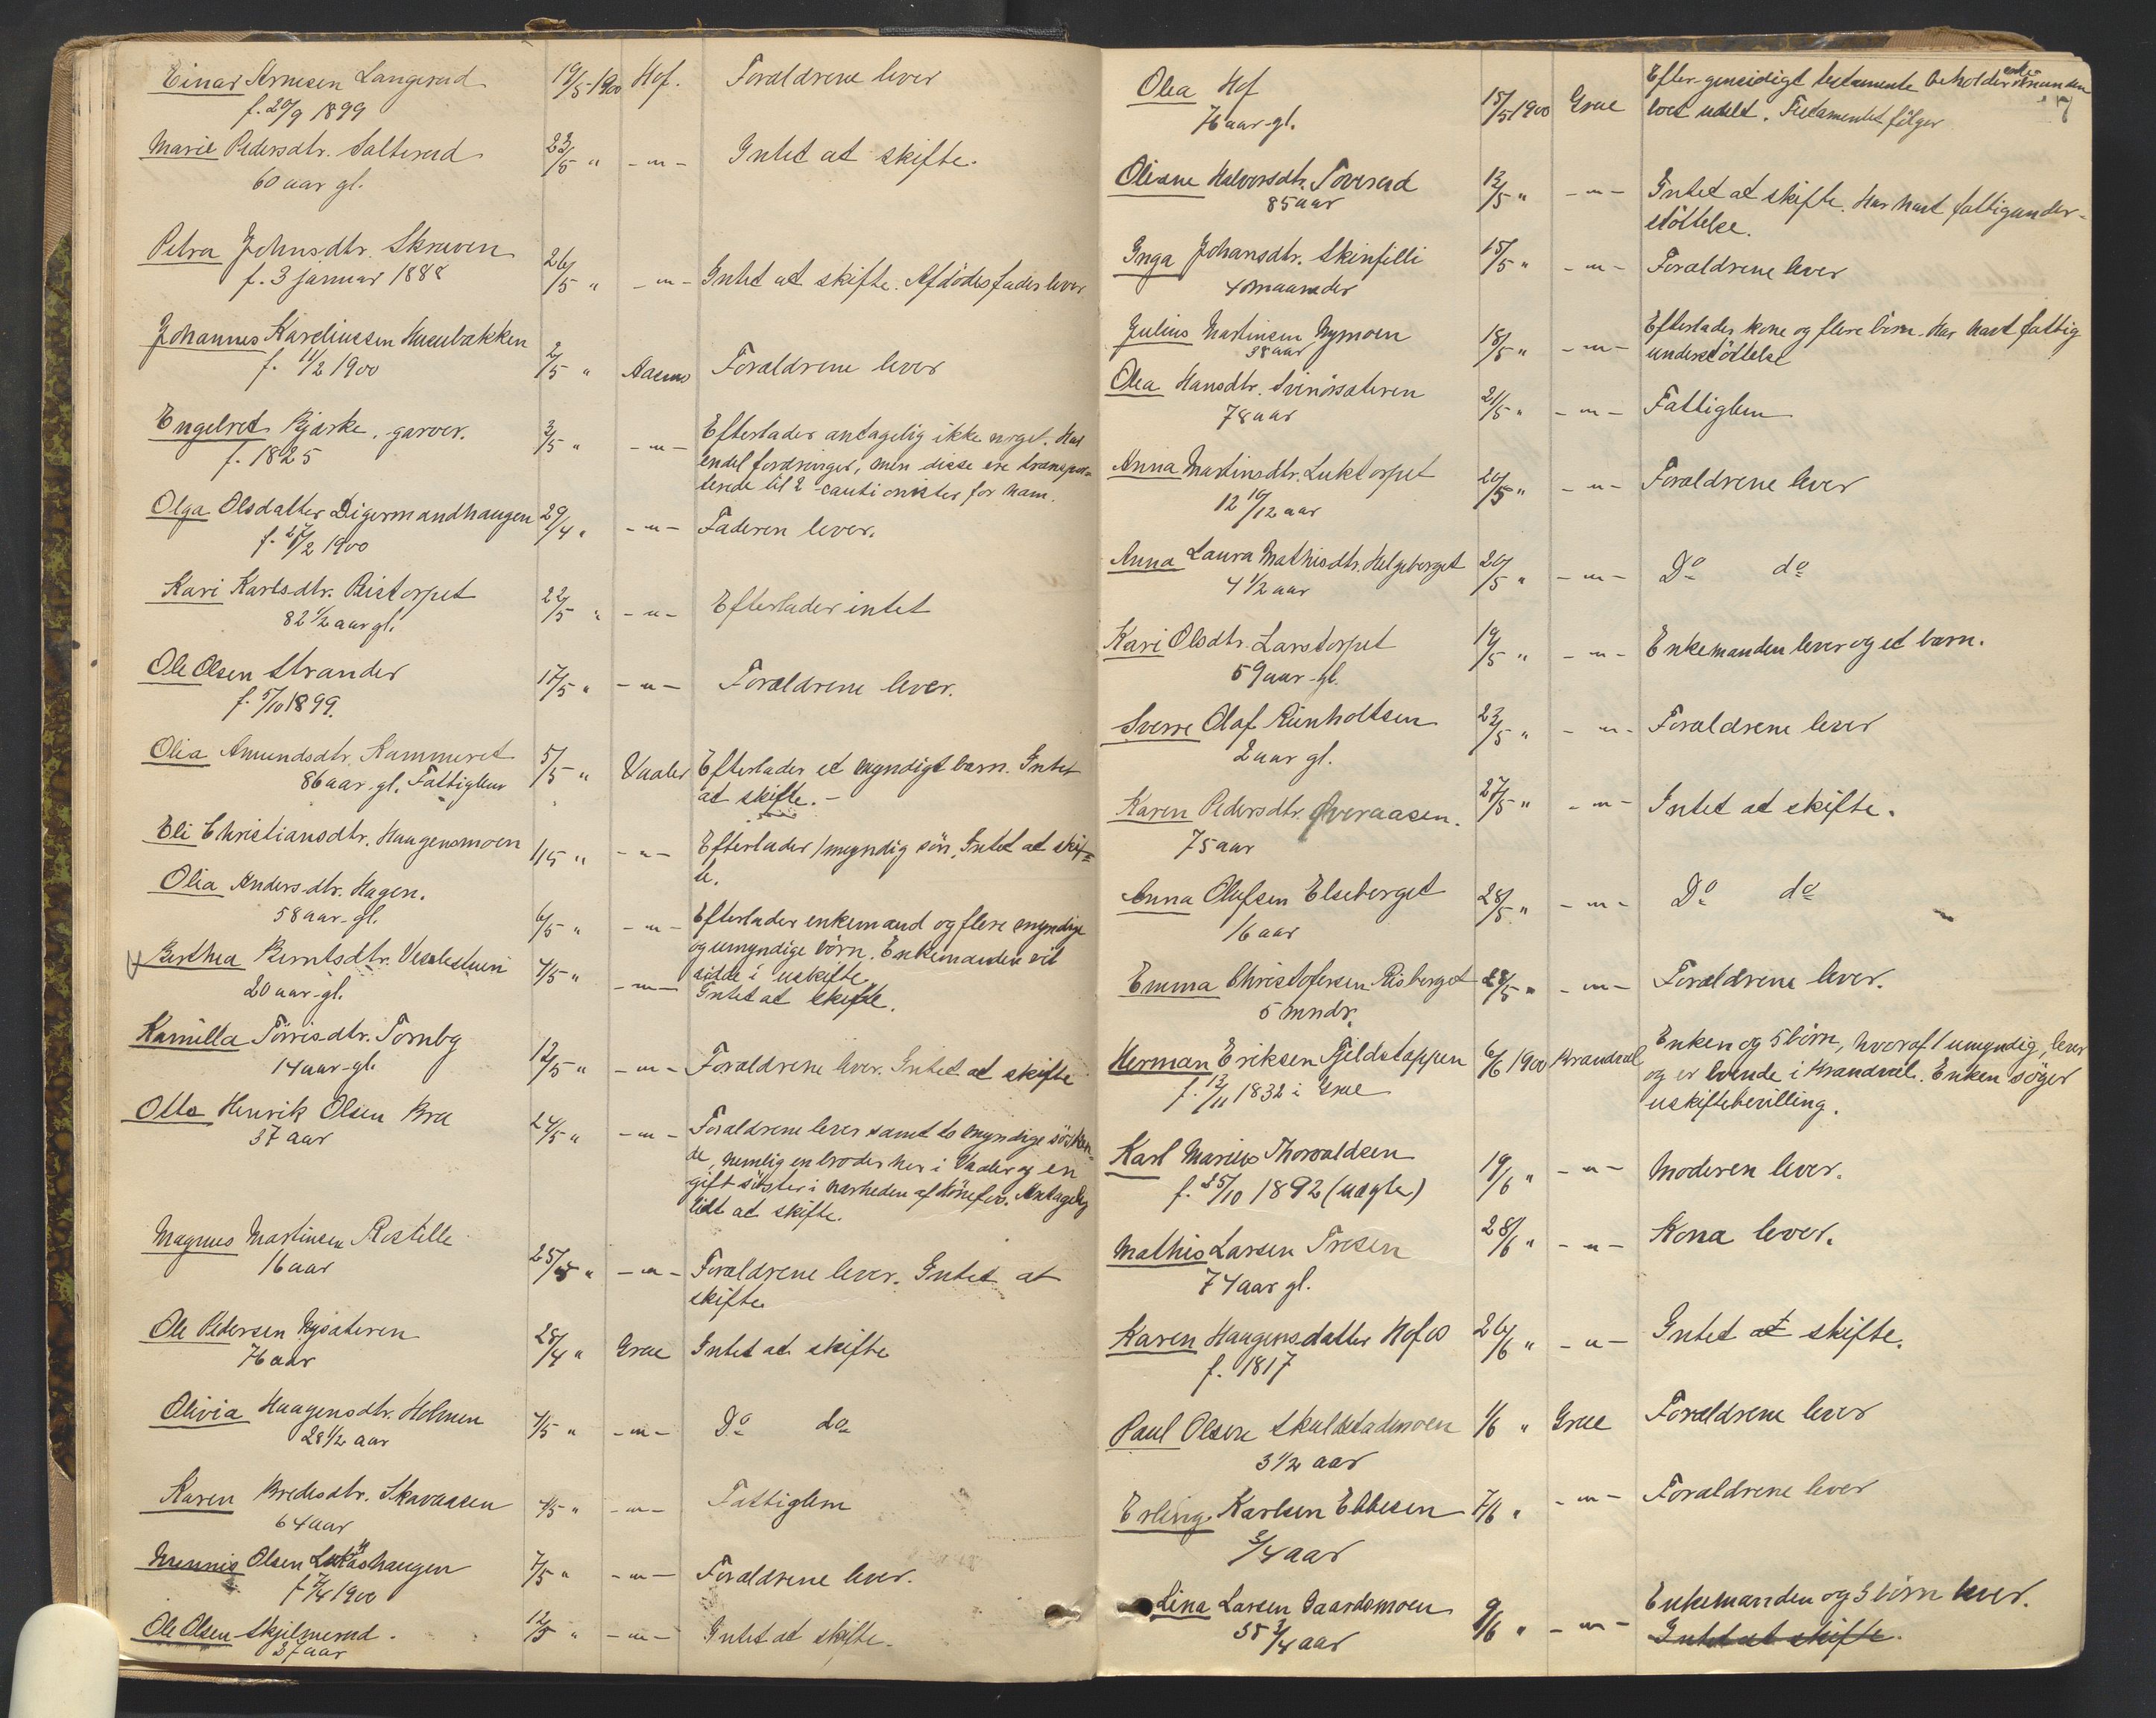 Einar Arnesen Langerud 19/5-1900 Hof. Forældrene lever
f. 20/9 1899
Marie Pedersdtr. Salterud 23/5 " -"- Intet at skifte.
60 aar gl.
Petra Johnsdtr. Skræven 26/5 " -"- Intet at skifte. Afdödes fader lever
f. 3 januar 1888
Johannes Kareliussen Husubakken 2/5 " Aasnes Forældrene lever
f. 11/2 1900
Engelret Bjerke, garver. 3/5 " -"- Efterlader antagelig ikke noget. Har
f. 1825 endel fordringer, men disse ere transpor-
terede til 2 cautionister for ham.
Olga Olsdatter Digermandhaugen 29/4 " -"- Faderen lever.
f. 27/2 1900
Kari Karlsdtr. Reistorpet 22/5 " -"- Efterlader intet
82 1/2 aar gl.
Ole Olsen Strander 17/5 " -"- Forældrene lever.
f. 5/10 1899.
Olia Amundsdtr. Kammeret 5/5 " Vaaler Efterlader et myndigt barn. Intet
86 aar gl. Fattiglem at skifte.-
Eli Christiansdtr. Haugensmoen 1/5 " -"- Efterlader 1 myndig sön. Intet at skif-
te.
Olia Andersdtr. Hagen.
58 aar gl. 6/5 " -"- Efterlader enkemand og flere myndige
og umyndige börn. Enkemanden vil
sidde i uskifte.
Berthea Berntsdtr. Veslestuen 4/5 " -"- Intet at skifte.
20 aar gl.
Kamilla Törrisdtr. Tornbg 12/5 " -"- Forældrene lever. Intet at skifte
14 aar gl.
Otto Henrik Olsen Bra 24/5 " -"- Forældrene lever samt to myndige sösken-
37 aar de, nemlig en broder her i Vaaler og en
gift söster i nærheden af Hönefos. Antagelig
lidt at skifte.
Magnus Martinsen Rostille 25/5 " -"- Forældrene lever. Intet at
16 aar skifte
Ole Pedersen Nysæteren 28/4 " Grue Intet at skifte
76 aar
Olivia Haagensdtr. Holmen 4/5 " -"- Do do
28 1/2 aar
Karen Bredesdtr. Skavaasen 4/5 " -"- Fattiglem
64 aar
Mennis Olsen Lukashaugen 7/5 " -"- Forældrene lever.
f 7/4 1900
Ole Olsen Skjelmerud. 12/5 " -"- Intet at skifte.
37 aar
Olea Hof 15/5 1900 Grue Efter gensidigt testamente beholder enkemanden
76 aar gl. boet udelt. Testamentet fölger
Oliane Halvorsdtr. Toverud 12/5 " -"- Intet at skifte. Har havt fattigunder-
85 aar stöttelse.
Inga Johansdtr. Skinfilli 15/5 " -"- Forældrene lever
4 maaneder
Julius Martinsen Nymoen 18/5 " -"- Efterlader kone og flere börn. Har havt fattig
38 aar understöttelse
Olea Hansdtr. Svinösæteren 21/5 " -"- Fattiglem
78 aar
Anna Martinsdtr. Luktorpet 20/5 " -"- Forældrene lever
12 10/12 aar
Anna Laura Mathisdtr. Helgeberget 20/5 " -"- Do do
4 1/2 aar
Kari Olsdtr. Larstorpet 19/5 " -"- Enkemanden lever og et barn.
59 aar gl.
Sverre Olaf Rienholtsen 23/5 " -"- Forældrene lever
2 aar gl.
Karen Pedersdtr. Overaasen. 27/5 " -"- Intet at skifte.
75 aar
Anna Olufsen Elseberget 28/5 " -"- Do do
16 aar
Emma Christofersen Risberget 28/5 " -"- Forældrene lever.
5 mndr.
Herman Eriksen Fjeldstappen 6/6 1900 Brandval Enken og 5 börn, hvoraf 1 umyndig, lever
f. 12/11 1832 i Grue og er boende i Brandval. Enken söger
uskiftebevilling.
Karl Marius Thorvaldsen 19/6 " -"- Moderen lever.
f. 25/10 1892 (uægte)
Mathis Larsen Træen 28/6 " -"- Kona lever.
74 aar gl.
Karen Haagensdatter Hofos 26/6 " -"- Intet at skifte.
f. 1817
Paul Olsen Skuldstadmoen 1/6 " Grue Forældrene lever
3 1/2 aar
Erling Karlsen Ebbesen 7/6 " -"- Forældrene lever
3/4 aar
Lina Larsen Gaardsmoen 9/6 " -"- Enkemanden og 3 börn lever.
38 3/4 aar Intet at skifte.